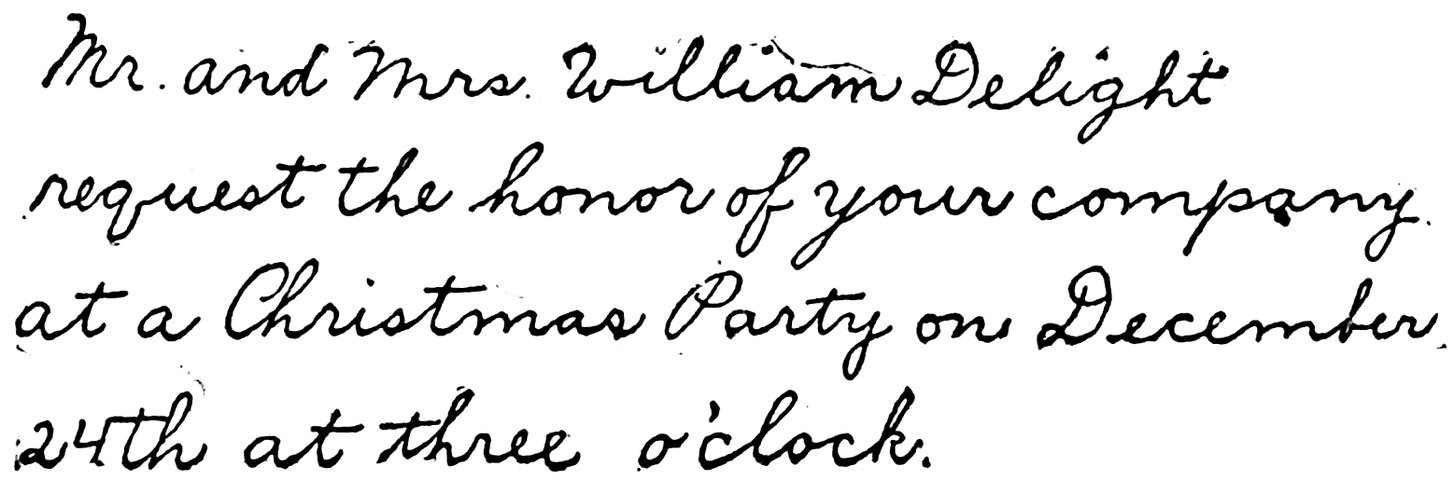 Mr. and Mrs. William Delight
request the honor of your company
at a Christmas Party on December
24th at three o'clock.